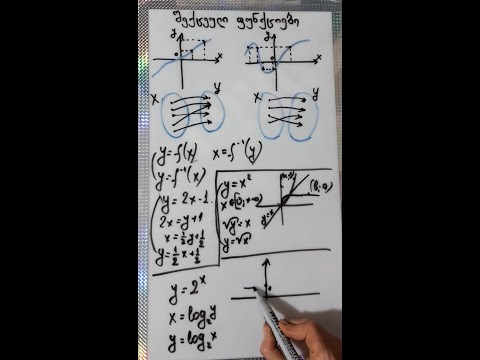 შექცეული ფუნქციები
y
x
o
y
x
o
x y
x y
y=f(x) x=f⁻¹(y)
y=f⁻¹(x)
y=2x-1
2x=y+1
x=½y+½
y=½x+½
y=x²
x∈[0;+∞)
√y=x
y=√x
y=x
(a,b)
(b,a)
y=2ˣ
x=log₂y
y=log₂x